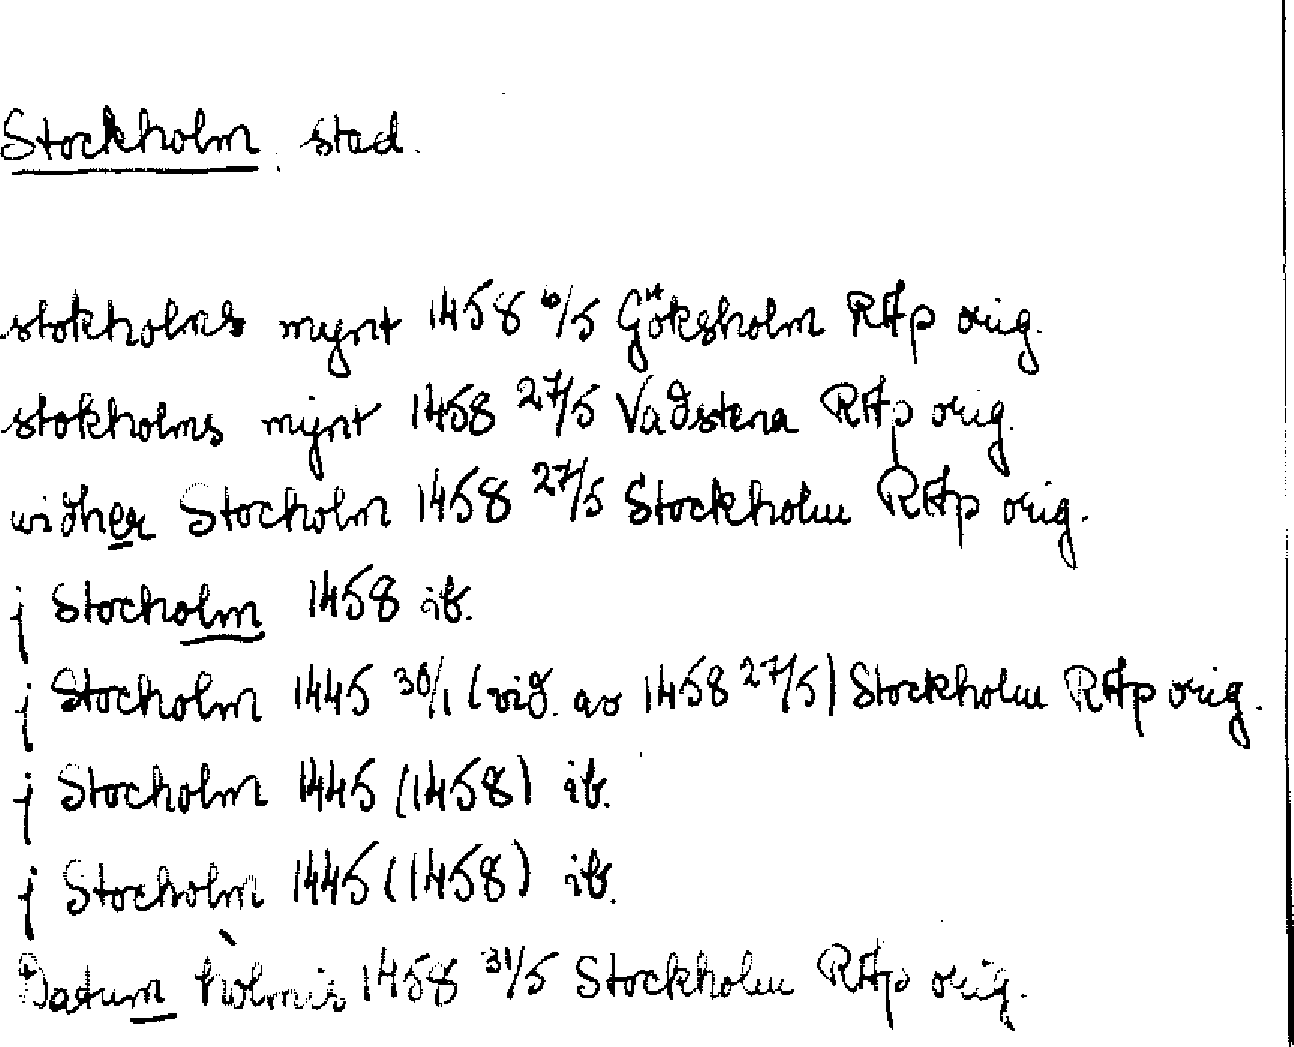 Stockholm, stad.
stokholms mynt 1458 6/5 Göksholm RAp orig.
stokholms mynt 1458 27/5 Vadstena RAp orig.
widher Stocholm 1458 27/5 Stockholm RAp orig.
j Stocholm 1458 ib.
j Stocholm 1445 30/1 (vid. av 1458 27/5) Stockholm RAp orig.
j Stocholm 1445 (1458) ib.
j Stocholm 1445 (1458) ib.
Datum holmis 1458 31/5 Stockholm RAp orig.